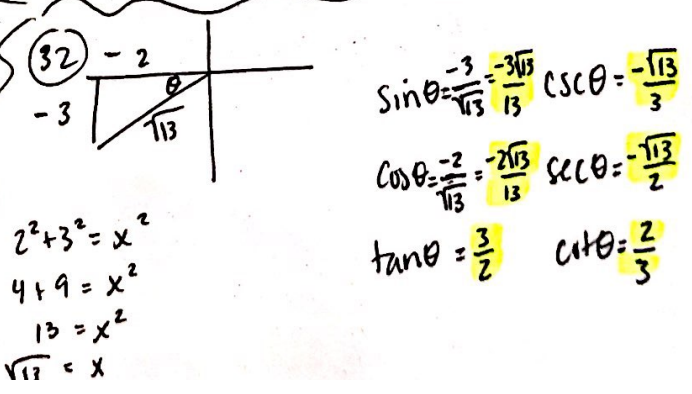 32
-2
θ
-3
√13
2²+3² = x²
4+9 = x²
13 = x²
√13 = x
sinθ = -3/√13 = -3√13/13 cscθ = -√13/3
cosθ = -2/√13 = -2√13/13 secθ = -√13/2
tanθ = 3/2 cotθ = 2/3